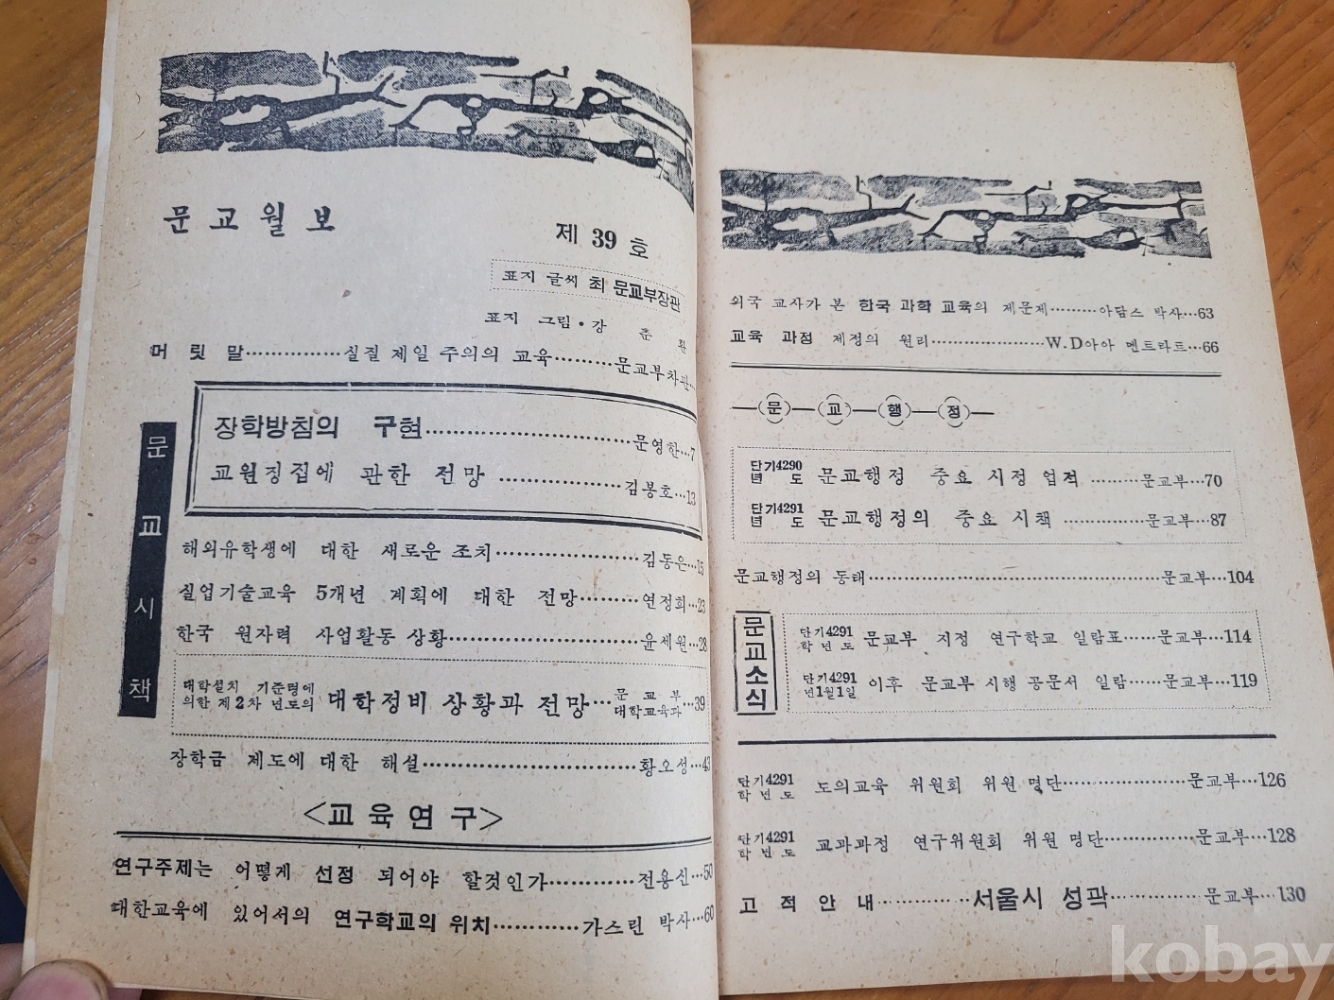 문교월보
제 39 호
표지 글씨 최 문교부장관
표지 그림·강 춘 환
머 릿 말……………실질 제일 주의의 교육………문교부차관
문교시책
장학방침의 구현……………………………문영한…7
교원징집에 관한 전망 ………………김봉호…13
해외유학생에 대한 새로운 조치…………………김동은…15
실업기술교육 5개년 계획에 대한 전망………연정희…23
한국 원자력 사업활동 상황…………………………윤세원…28
대학설치 기준령에 의한 제2차 년도의 대학정비 상황과 전망…문교부 대학교육과…39
장학금 제도에 대한 해설……………………………황오성…43
<교육연구>
연구주제는 어떻게 선정 되어야 할것인가…………전용신…50
대한교육에 있어서의 연구학교의 위치…………가스린 박사…60
외국 교사가 본 한국 과학 교육의 제문제………아담스 박사…63
교육 과정 제정의 원리……………………W.D아아 멘트라트…66
문교행정
단기4290년도 문교행정 중요 시정 업적 ………문교부…70
단기4291년도 문교행정의 중요 시책 ……………문교부…87
문교행정의 동태……………………………………………문교부…104
문교소식
단기4291학년도 문교부 지정 연구학교 일람표……문교부…114
단기4291년1월1일 이후 문교부 시행 공문서 일람……문교부…119
단기4291학년도 도의교육 위원회 위원 명단…………………문교부…126
단기4291학년도 교과과정 연구위원회 위원 명단……………문교부…128
고적안내……………서울시 성곽……………문교부…130
kobay